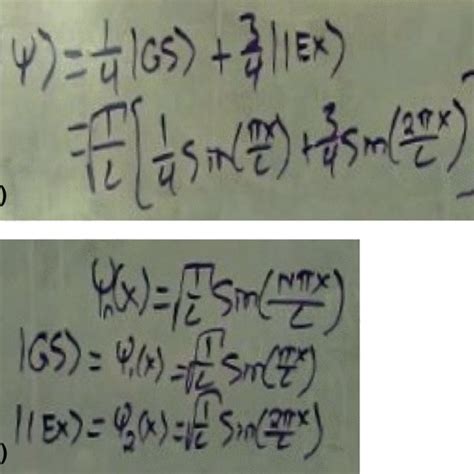 ψ⟩ = 1/4 |GS⟩ + 3/4 |1Ex⟩
= √(1/L) [ 1/4 Sin(πx/L) + 3/4 Sin(2πx/L) ]
)
ψₙ(x) = √(1/L) Sin(Nπx/L)
|GS⟩ = ψ₁(x) = √(1/L) Sin(πx/L)
|1Ex⟩ = ψ₂(x) = √(1/L) Sin(2πx/L)
)